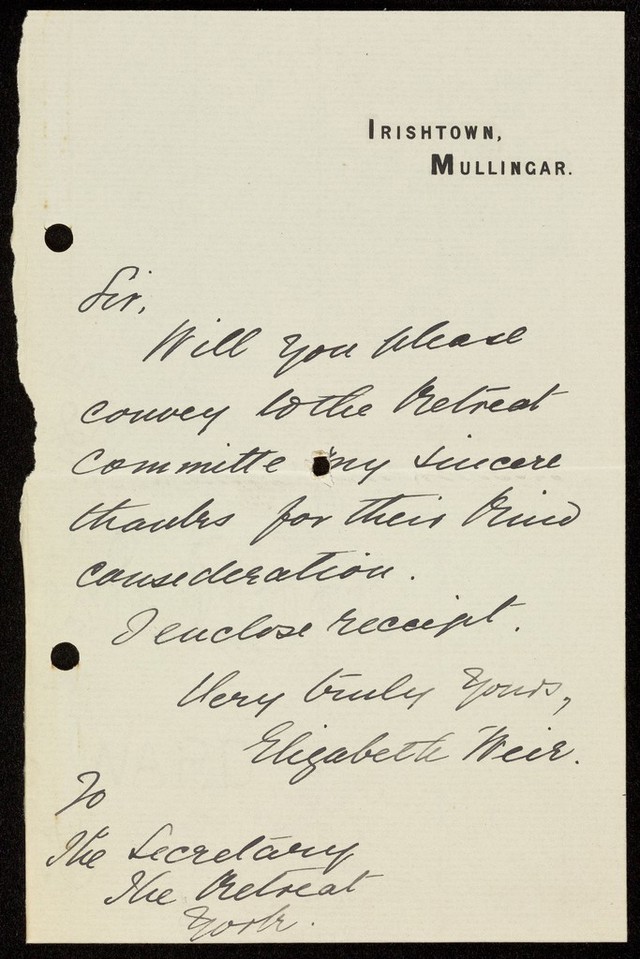 IRISHTOWN,
MULLINGAR.
Sir,
Will you please
convey to the Retreat
Committe my sincere
thanks for their kind
consederation.
I enclose receipt.
Very truly yours,
Elizabeth Weir.
To
The Secretary
The Retreat
York.